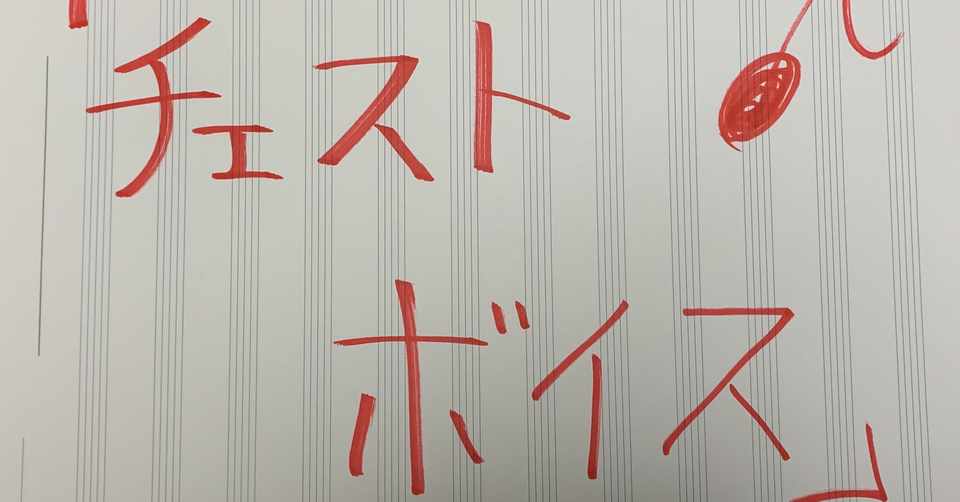 「チェスト
ボイス」